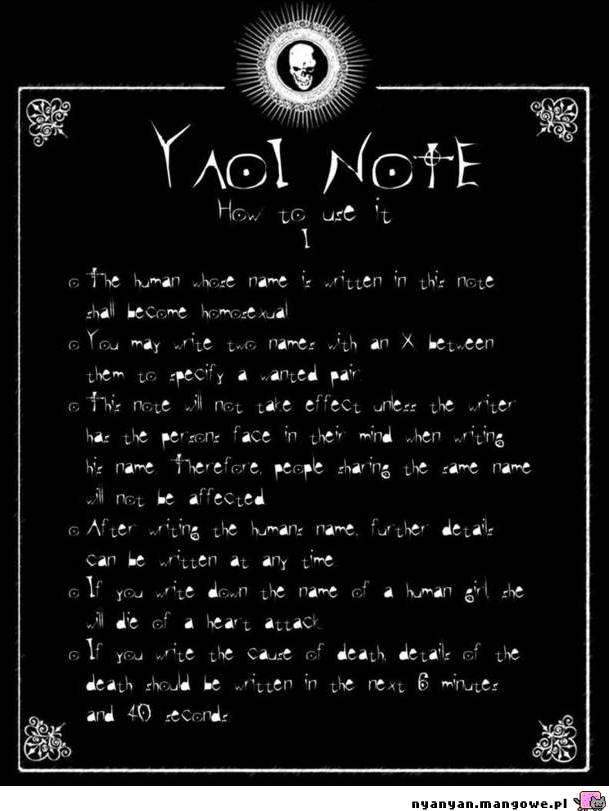 YAOI NOTE
How to use it
I
The human whose name is written in this note
shall become homosexual
You may write two names with an X between
them to specify a wanted pair
This note will not take effect unless the writer
has the persons face in their mind when writing
his name. Therefore, people sharing the same name
will not be affected
After writing the humans name, further details
can be written at any time
If you write down the name of a human girl she
will die of a heart attack
If you write the cause of death, details of the
death should be written in the next 6 minutes
and 40 seconds
nyanyan.mangowe.pl